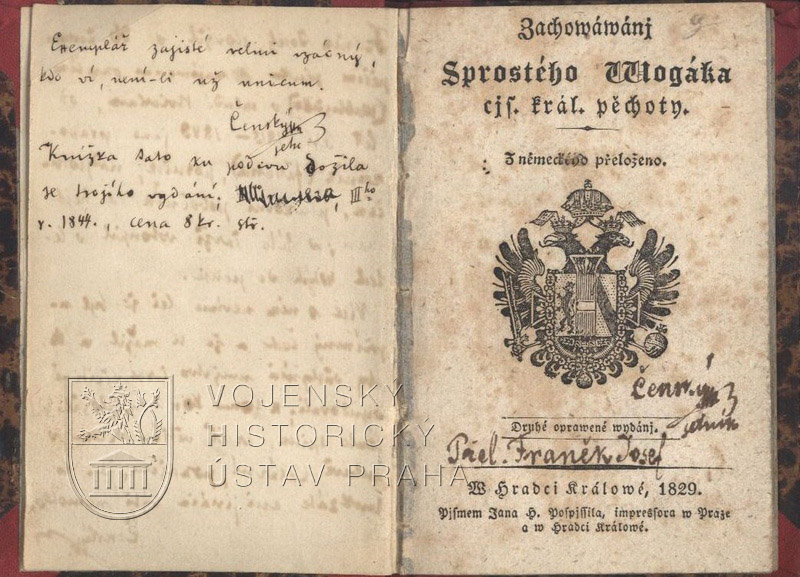 Exemplář zajisté velmi vzácný,
kdo ví, není-li už unicum.
Čenský
Knížka tato ku podivu dožila
se trojího vydání, IIIho
r. 1844., cena 8 kr. stř.
Zachowáwánj
Sprostého Wogáka
cjs. král. pěchoty.
Z německého přeloženo.
Čenský
Druhé oprawené wydánj.
Přel. Franěk Josef
W Hradci Králowé, 1829.
Pjsmem Jana H. Pospjssila, impressora w Praze
a w Hradci Králowé.
VOJENSKÝ
HISTORICKÝ
ÚSTAV PRAHA